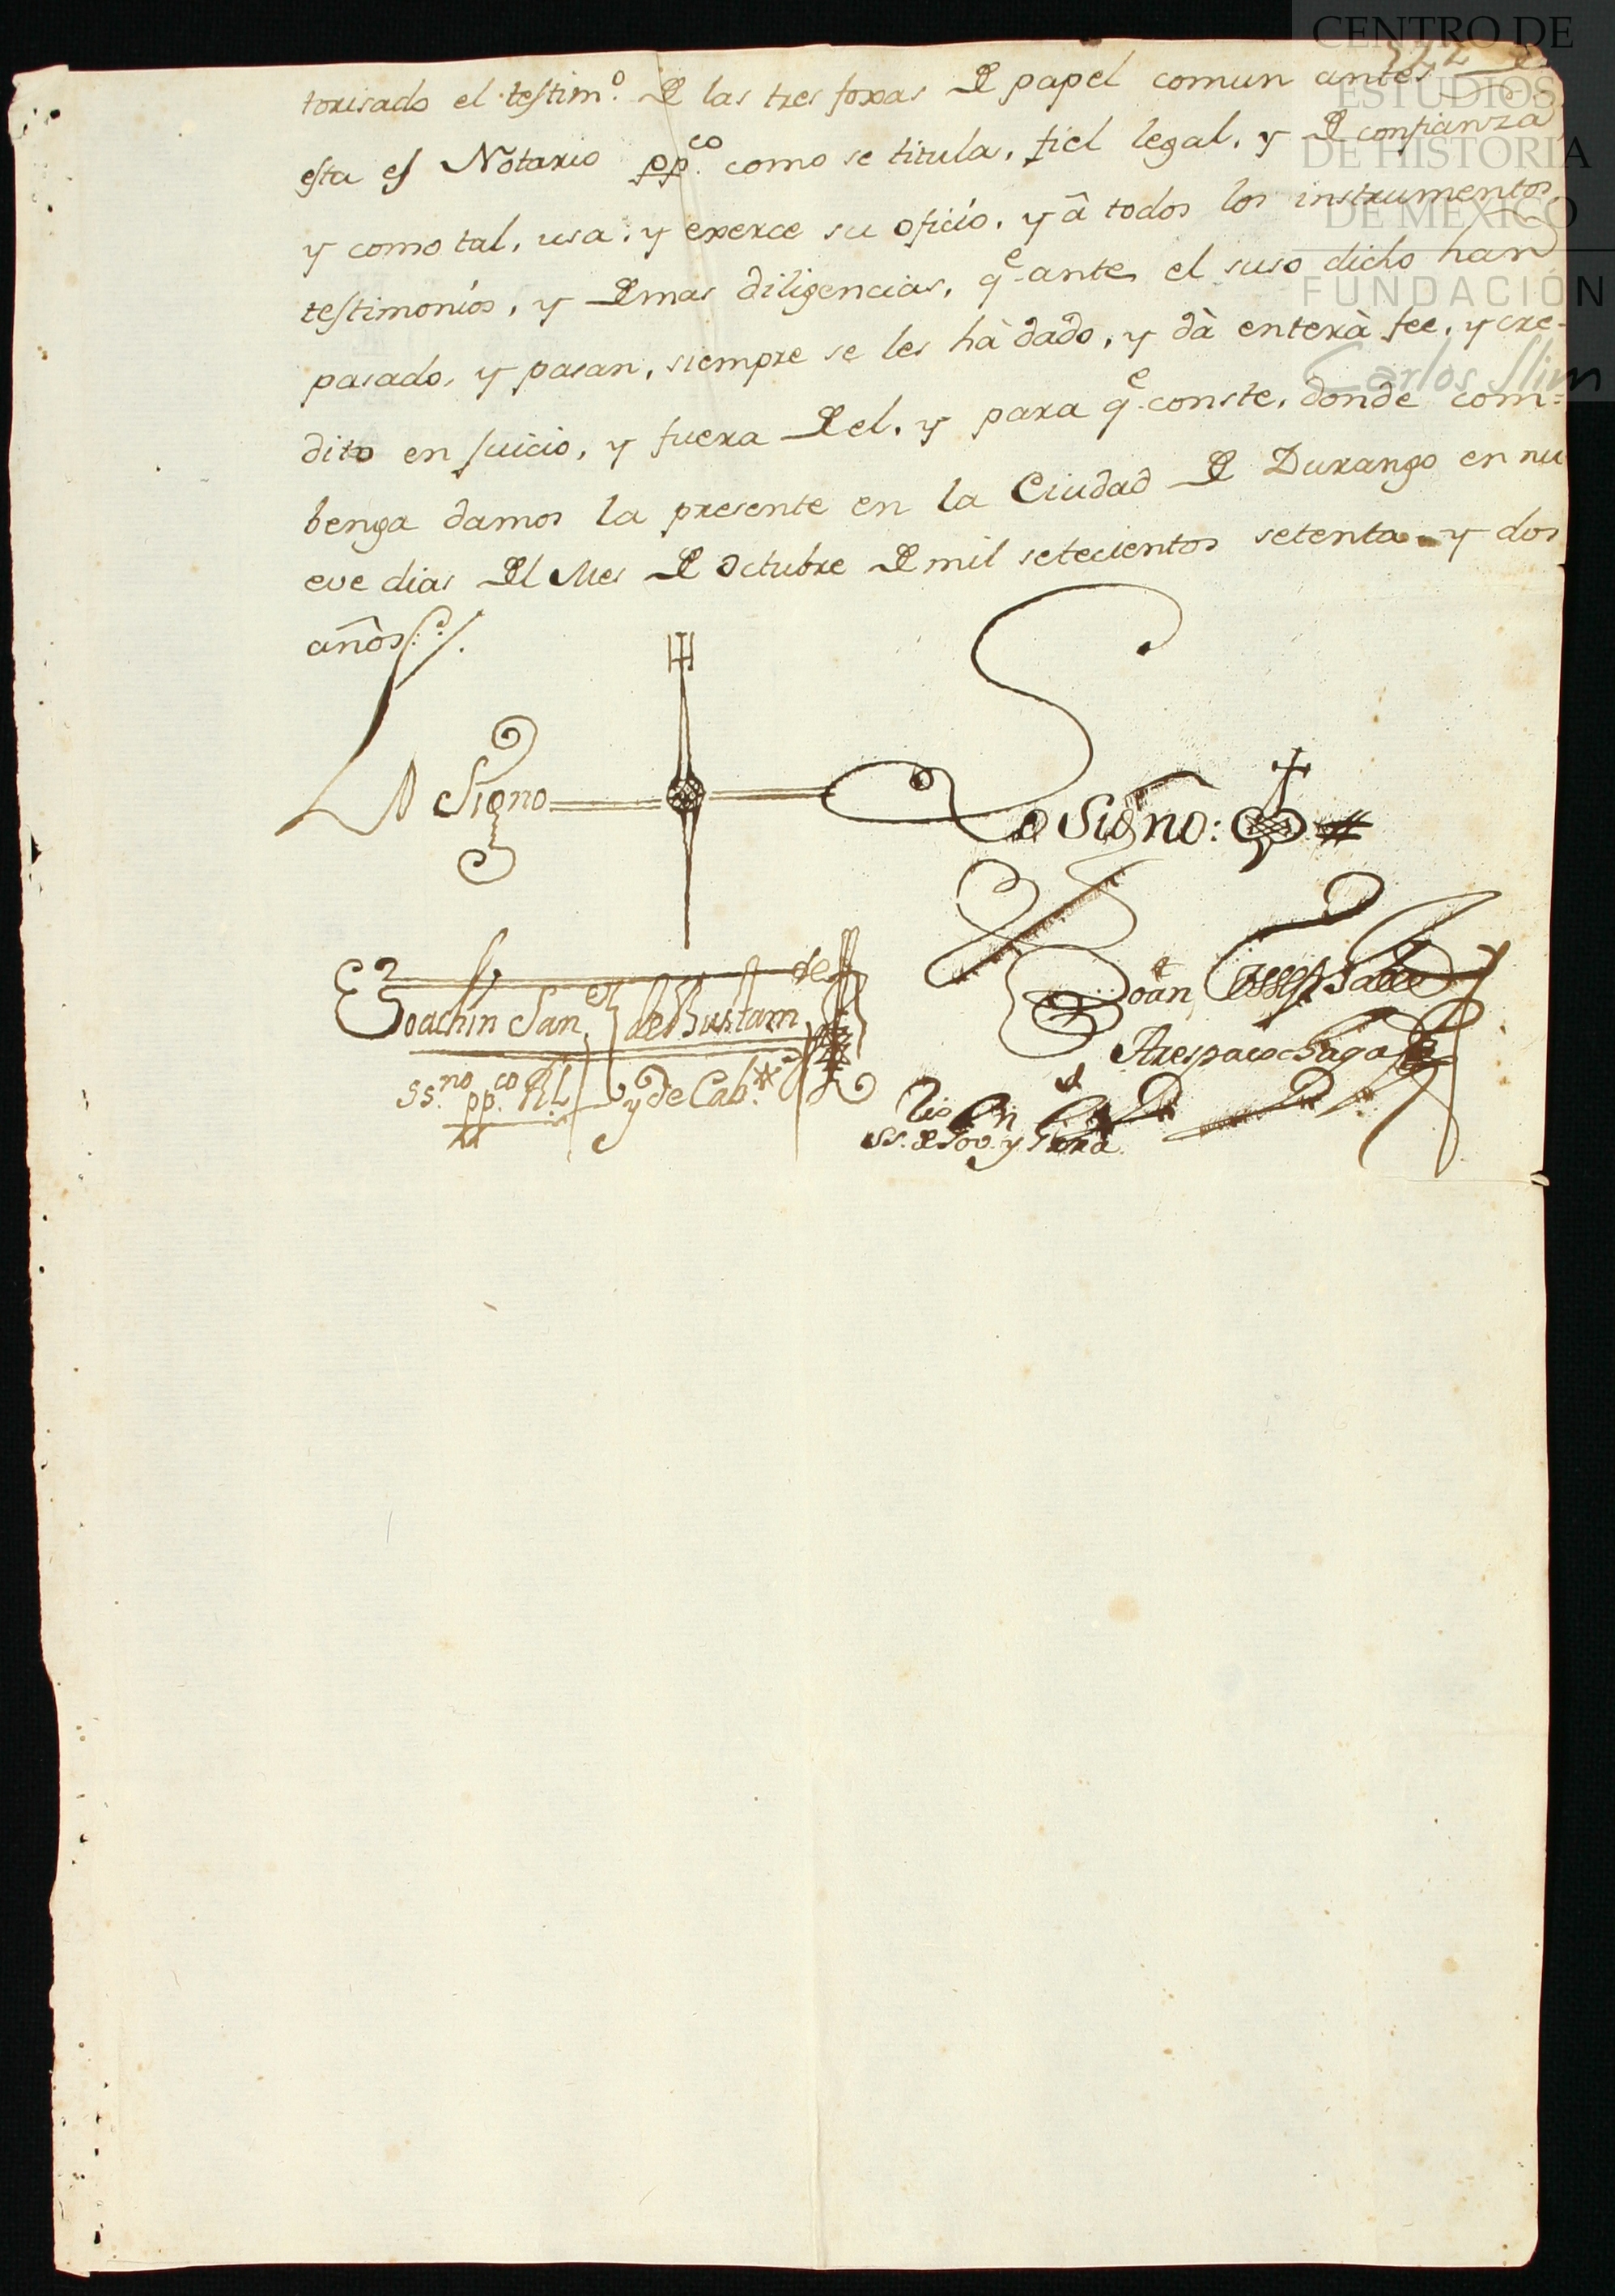 CENTRO DE
ESTUDIOS
DE HISTORIA
DE MÉXICO
FUNDACIÓN
Carlos Slim
torisado el testim.º de las tres foxas de papel comun antes
esta es Notario pp.co como se titula, fiel legal, y de confianza
y como tal, usa, y exerce su oficio, y â todos los instrumentos
testimonios, y demas diligencias, qe ante el suso dicho han
pasado, y pasan, siempre se les hà dado, y dà enterà fee, y cre-
dito en Juicio, y fuera de el, y para qe conste, donde com=
benga damos la presente en la Ciudad de Durango en nu
eve dias del Mes de Octubre de mil setecientos setenta y dos
años
Signo
o Signo:
Joachin San.ez de Bustam.de
ss.no pp.co Rl. y de Cab.
Joan Joseph
Arespacochaga
ss. de Gov.n y Grrâ.